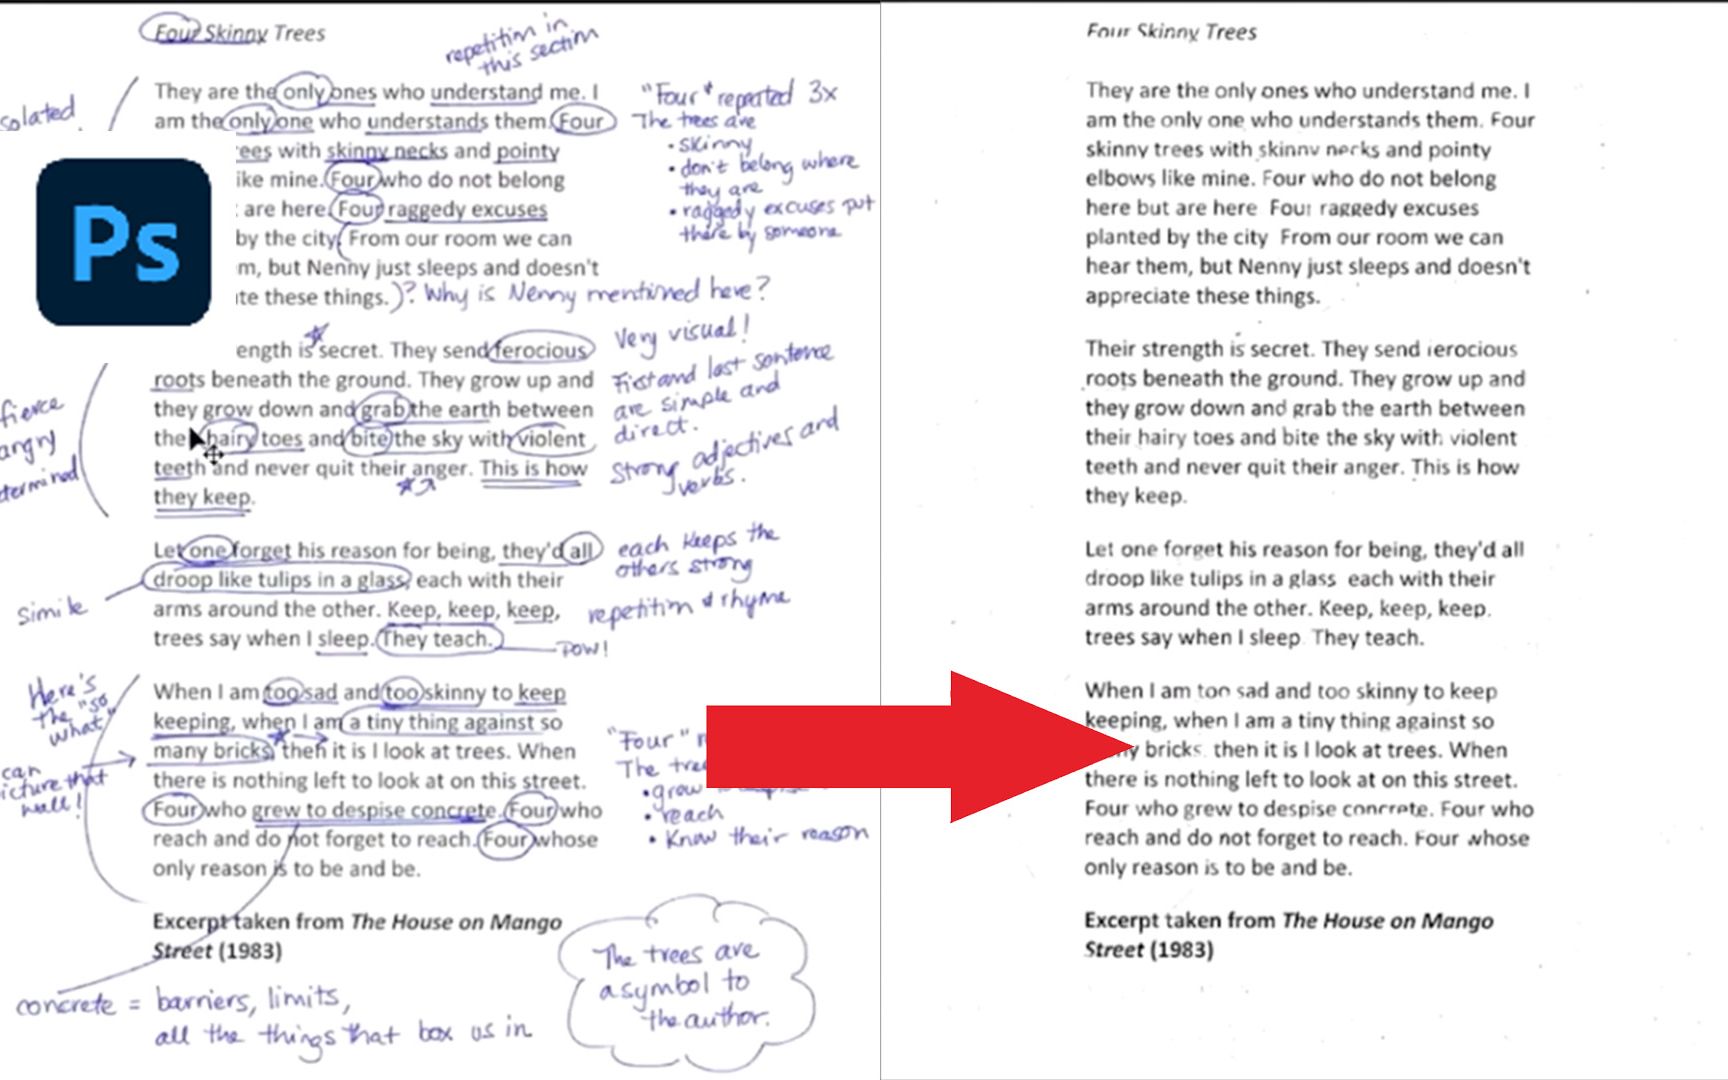 Four Skinny Trees
repetition in
this section
solated
They are the only ones who understand me. I
am the only one who understands them. Four
ees with skinny necks and pointy
ike mine. Four who do not belong
are here. Four raggedy excuses
by the city. From our room we can
m, but Nenny just sleeps and doesn't
te these things.)? Why is Nenny mentioned here?
"Four" repeated 3x
The trees are
• skinny
• don't belong where
they are
• raggedy excuses put
there by someone
Ps
ength is secret. They send ferocious
roots beneath the ground. They grow up and
they grow down and grab the earth between
the hairy toes and bite the sky with violent
teeth and never quit their anger. This is how
they keep.
Very visual!
First and last sentence
are simple and
direct.
Strong adjectives and
verbs.
fierce
angry
termined
Let one forget his reason for being, they'd all
droop like tulips in a glass, each with their
arms around the other. Keep, keep, keep,
trees say when I sleep. They teach.
each keeps the
others strong
repetition & rhyme
POW!
Simile
When I am too sad and too skinny to keep
keeping, when I am a tiny thing against so
many bricks, then it is I look at trees. When
there is nothing left to look at on this street.
Four who grew to despise concrete. Four who
reach and do not forget to reach. Four whose
only reason is to be and be.
Here's
the "so
what"
can
icture that
wall!
"Four" r
The tre
• grew
• reach
• Know their reason
Excerpt taken from The House on Mango
Street (1983)
concrete = barriers, limits,
all the things that box us in
The trees are
a symbol to
the author.
Four Skinny Trees
They are the only ones who understand me. I
am the only one who understands them. Four
skinny trees with skinny necks and pointy
elbows like mine. Four who do not belong
here but are here Four raggedy excuses
planted by the city From our room we can
hear them, but Nenny just sleeps and doesn't
appreciate these things.
Their strength is secret. They send ferocious
roots beneath the ground. They grow up and
they grow down and grab the earth between
their hairy toes and bite the sky with violent
teeth and never quit their anger. This is how
they keep.
Let one forget his reason for being, they'd all
droop like tulips in a glass each with their
arms around the other. Keep, keep, keep.
trees say when I sleep They teach.
When I am too sad and too skinny to keep
keeping, when I am a tiny thing against so
ny bricks. then it is I look at trees. When
there is nothing left to look at on this street.
Four who grew to despise concrete. Four who
reach and do not forget to reach. Four whose
only reason is to be and be.
Excerpt taken from The House on Mango
Street (1983)